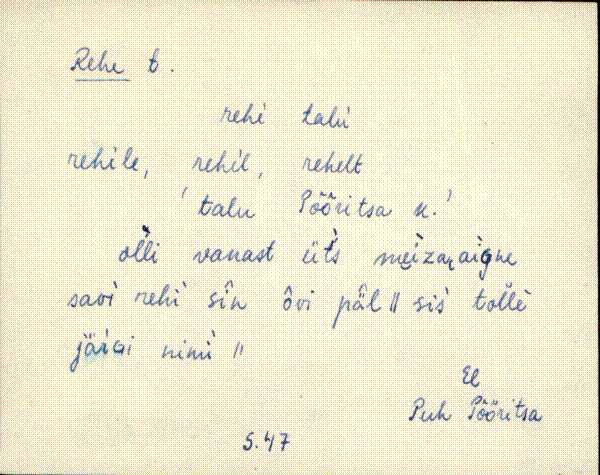 Rehe t.
rehì talù
rehìle, rehìl, rehelt
'talu Põõritsa k.'
ol̀li vanast üt̀s meìzaꭋaìgne
savì rehì sîn ôvi pâl || sìs tol̆lè
järgi nimì ||
El
Puh Põõritsa
S.47